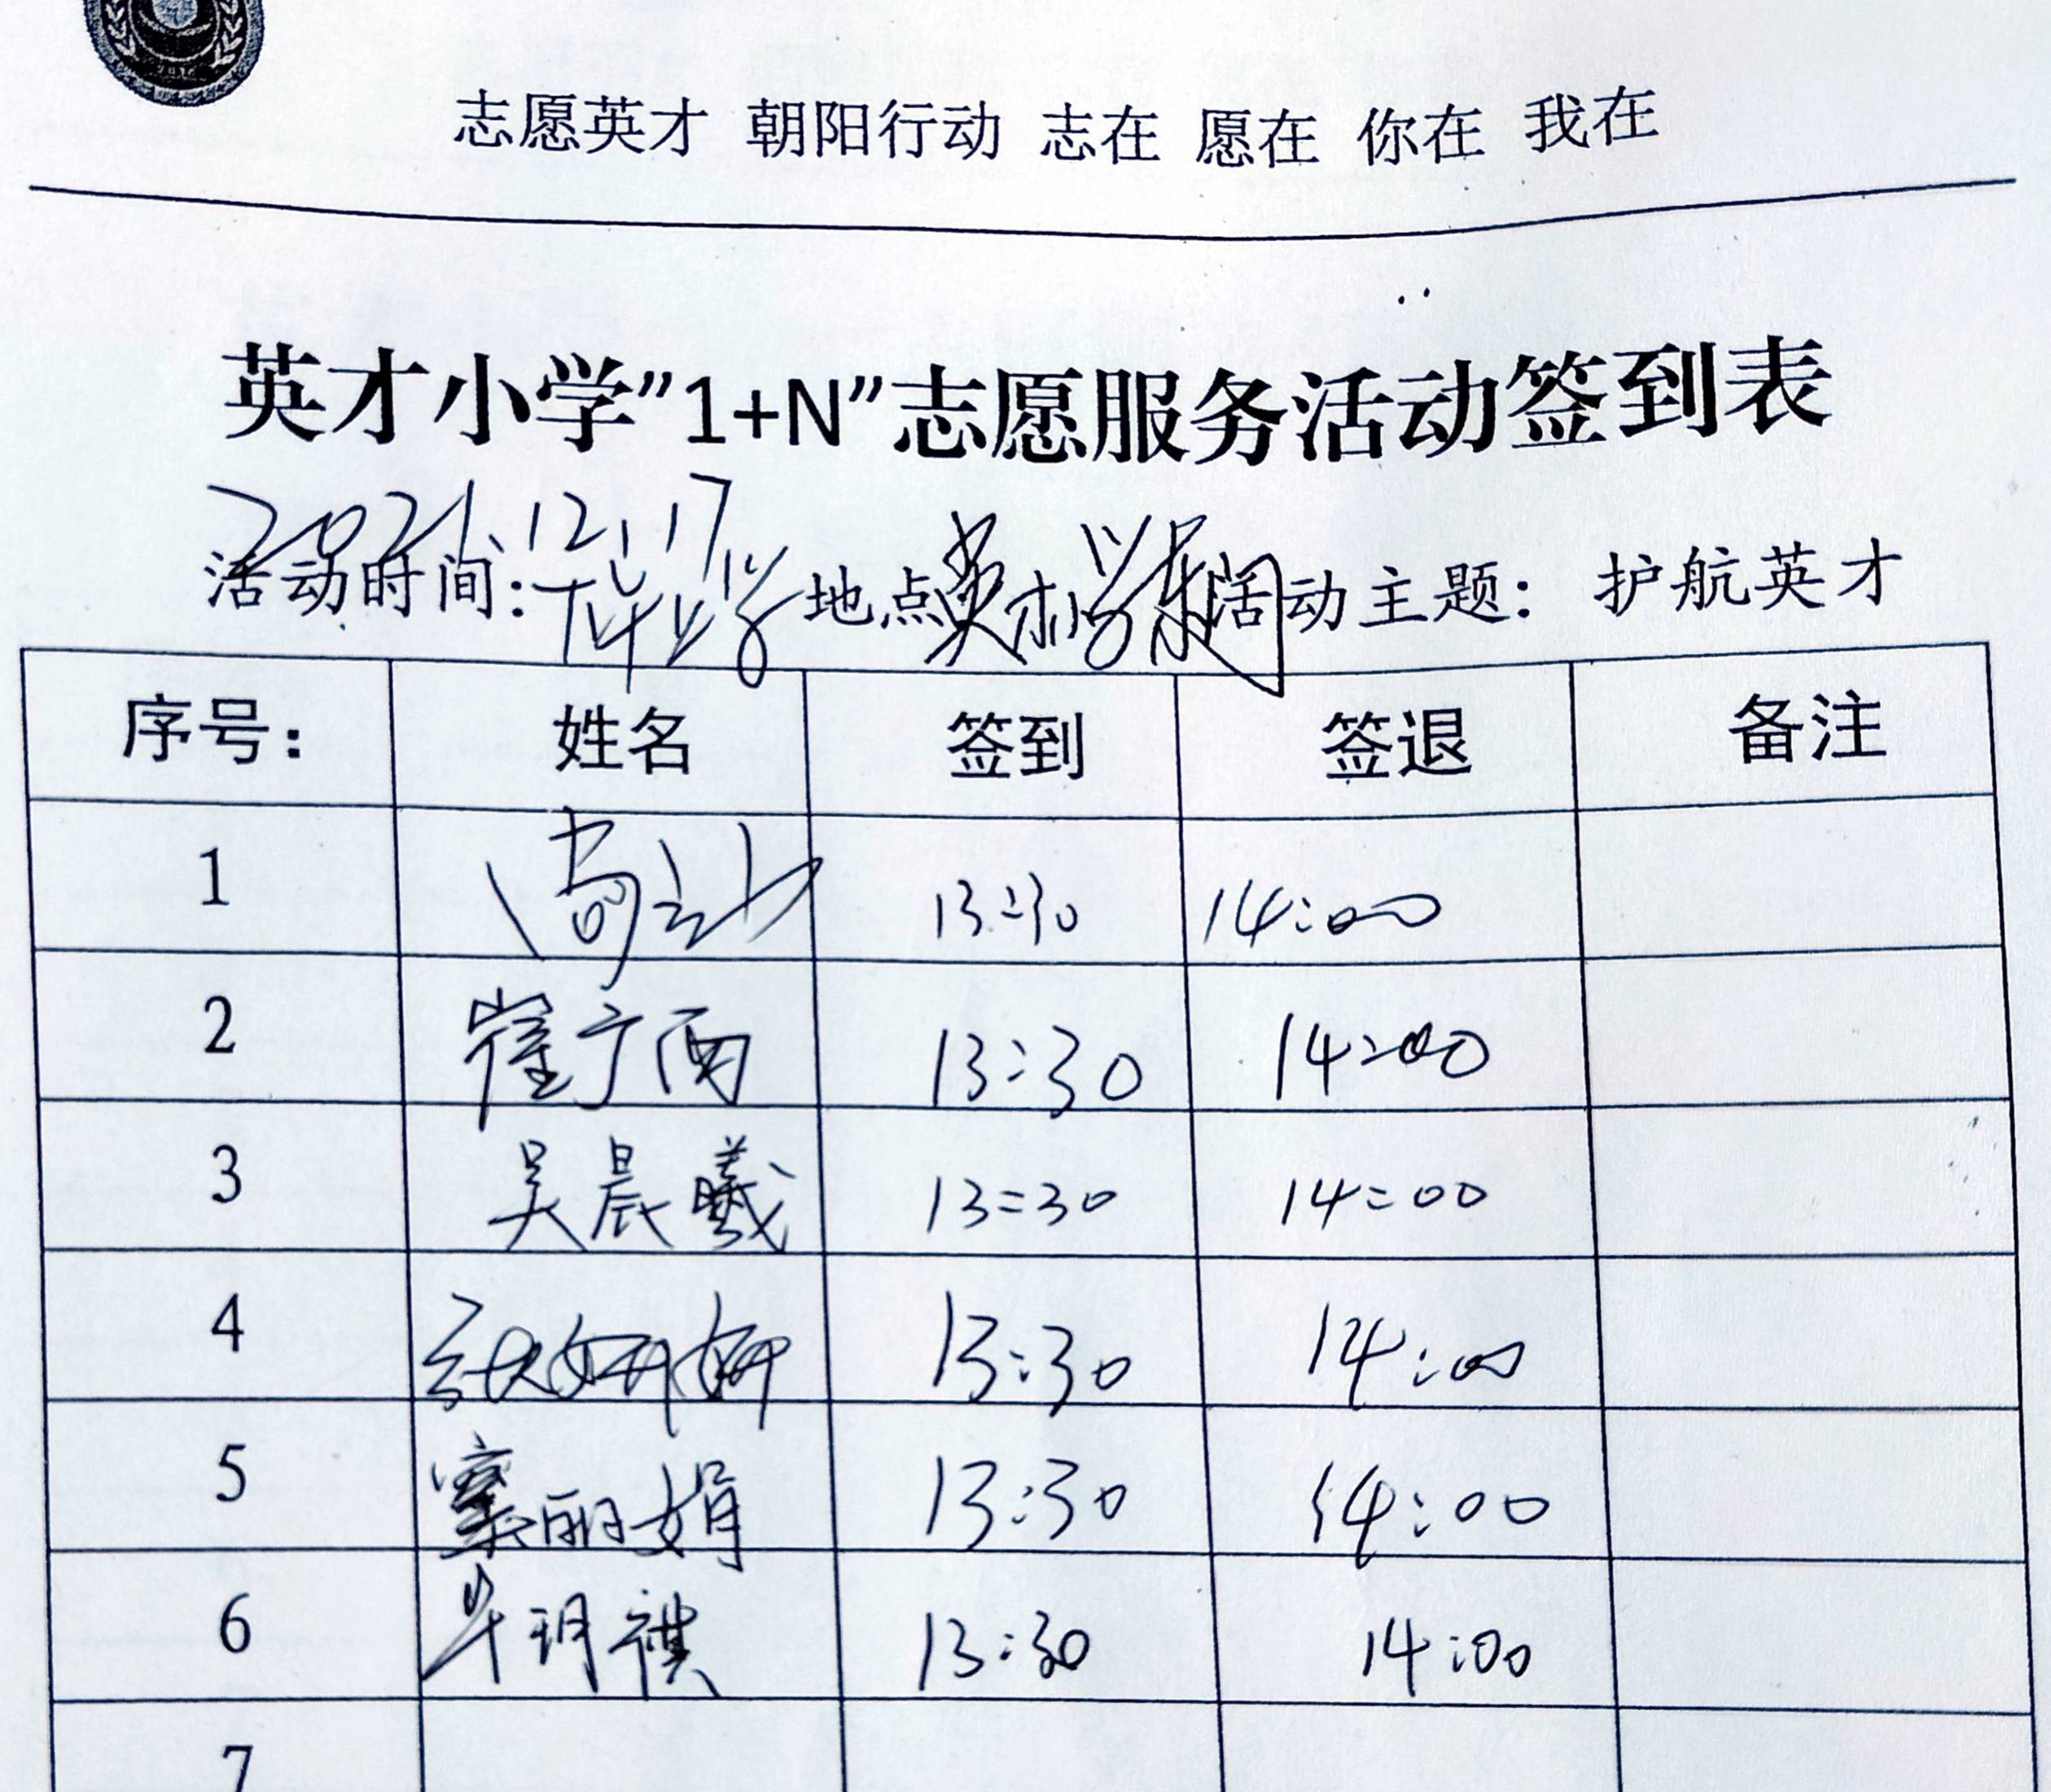 志愿英才 朝阳行动 志在 愿在 你在 我在
英才小学”1+N”志愿服务活动签到表
2021.12.17
活动时间:下午放学 地点 英才小学东门 活动主题: 护航英才
序号: 姓名 签到 签退 备注
1 13:30 14:00
2 崔宁雨 13:30 14:00
3 吴晨曦 13:30 14:00
4 妍妍 13:30 14:00
5 窦丽娟 13:30 14:00
6 牟玥祺 13:30 14:00
7